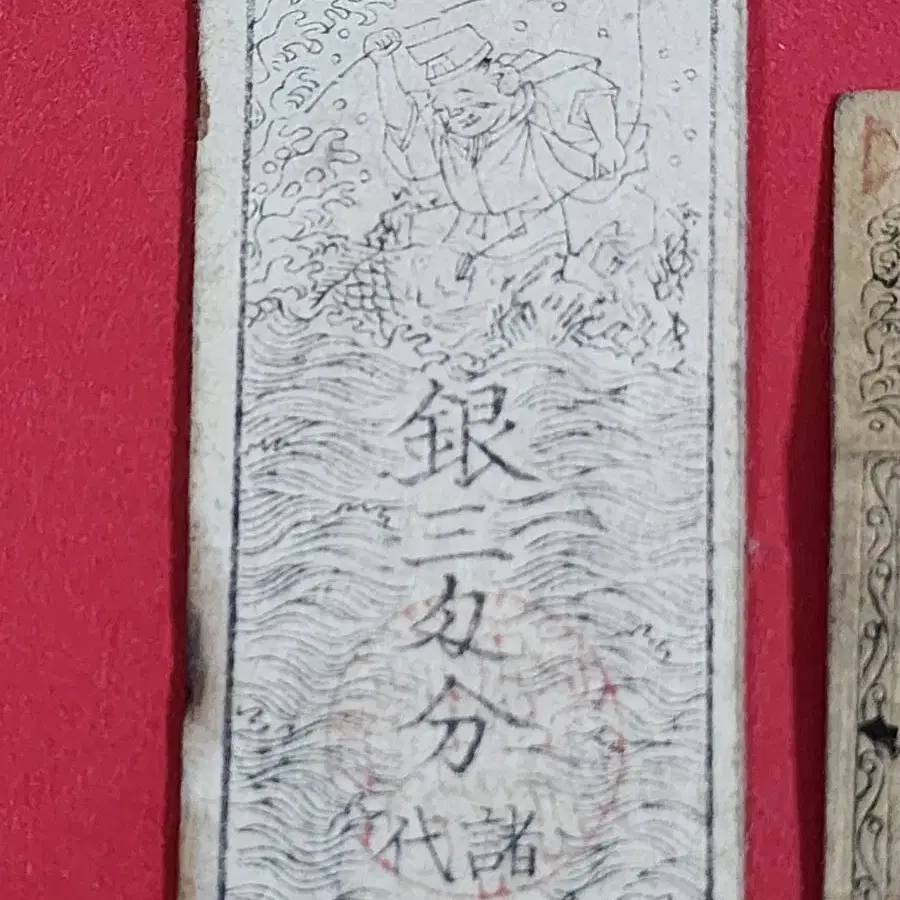 銀
三
匁
分
諸代